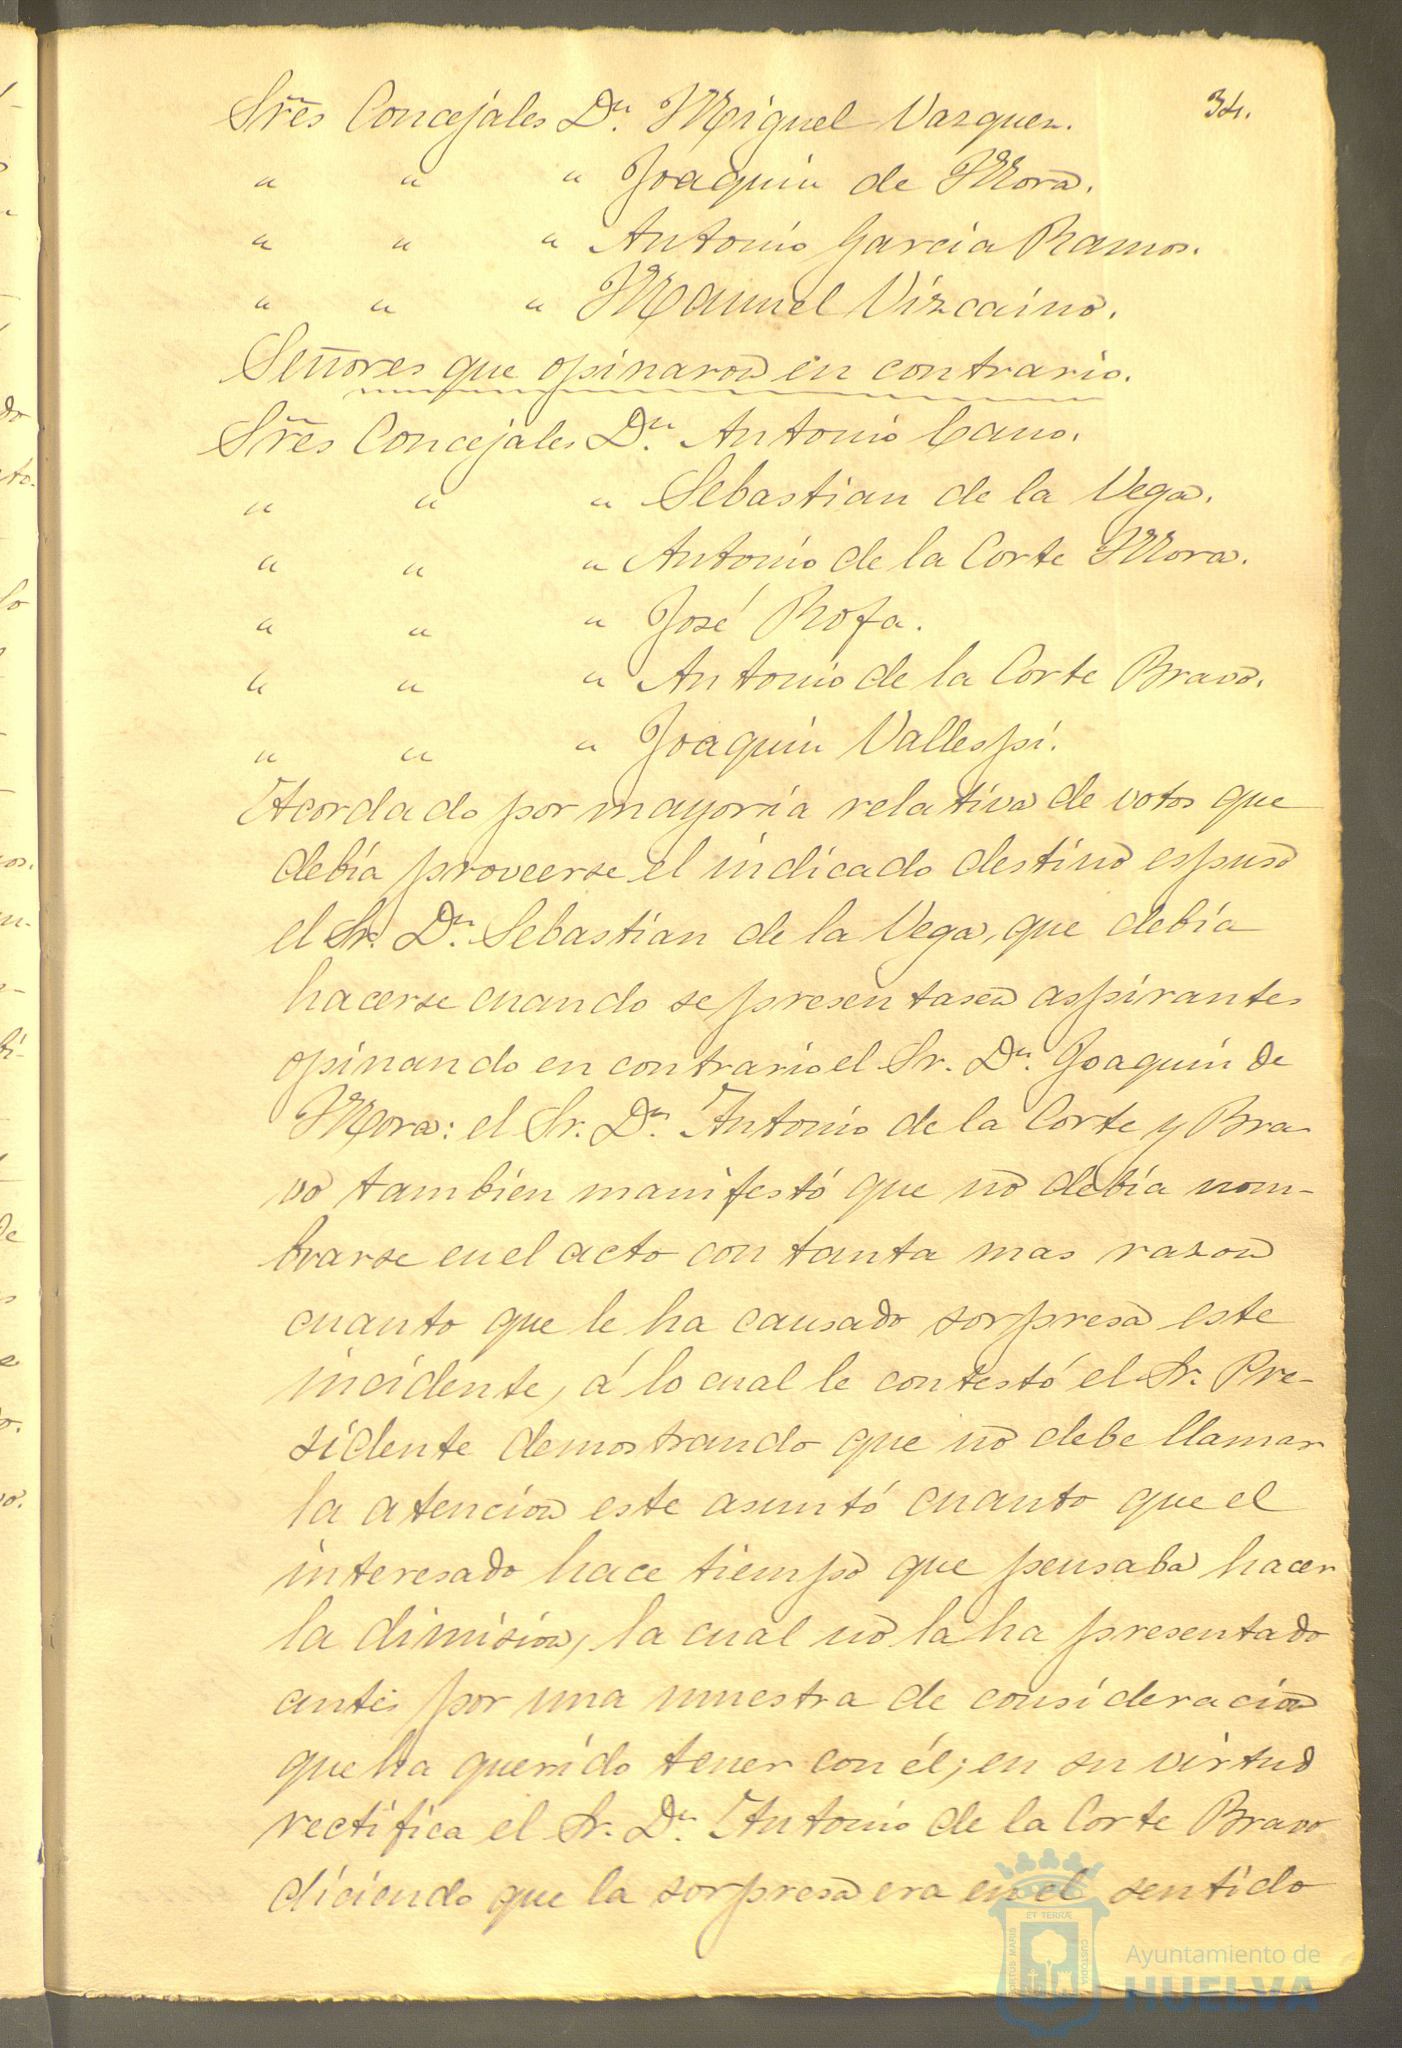 34.
Sres Concejales Dn. Miguel Vazquez.
" " " Joaquin de Mora.
" " " Antonio Garcia Ramos.
" " " Manuel Vizcaino.
Señores que opinaron en contrario.
Sres Concejales Dn. Antonio Cano.
" " " Sebastian de la Vega.
" " " Antonio de la Corte Mora.
" " " José Rofa.
" " " Antonio de la Corte Bravo.
" " " Joaquin Vallespi.
Acordado por mayoría relativa de votos que
debía proveerse el indicado destino espuso
el Sr. Dn. Sebastian de la Vega, que debía
hacerse cuando se presentasen aspirantes
opinando en contrario el Sr. Dn. Joaquin de
Mora: el Sr. Dn. Antonio de la Corte y Bra-
vo tambien manifestó que no debía nom-
brarse en el acto con tanta mas razon
cuanto que le ha causado sorpresa este
incidente, á lo cual le contestó el Sr. Pre-
sidente demostrando que no debe llamar
la atencion este asunto cuanto que el
interesado hace tiempo que pensaba hacer
la dimision, la cual no la ha presentado
antes por una muestra de consideracion
que ha querido tener con él; en su virtud
rectifica el Sr. Dn. Antonio de la Corte Bravo
diciendo que la sorpresa era en el sentido
ET TERRÆ
PORTUS MARIS
CUSTODIA
Ayuntamiento de
HUELVA